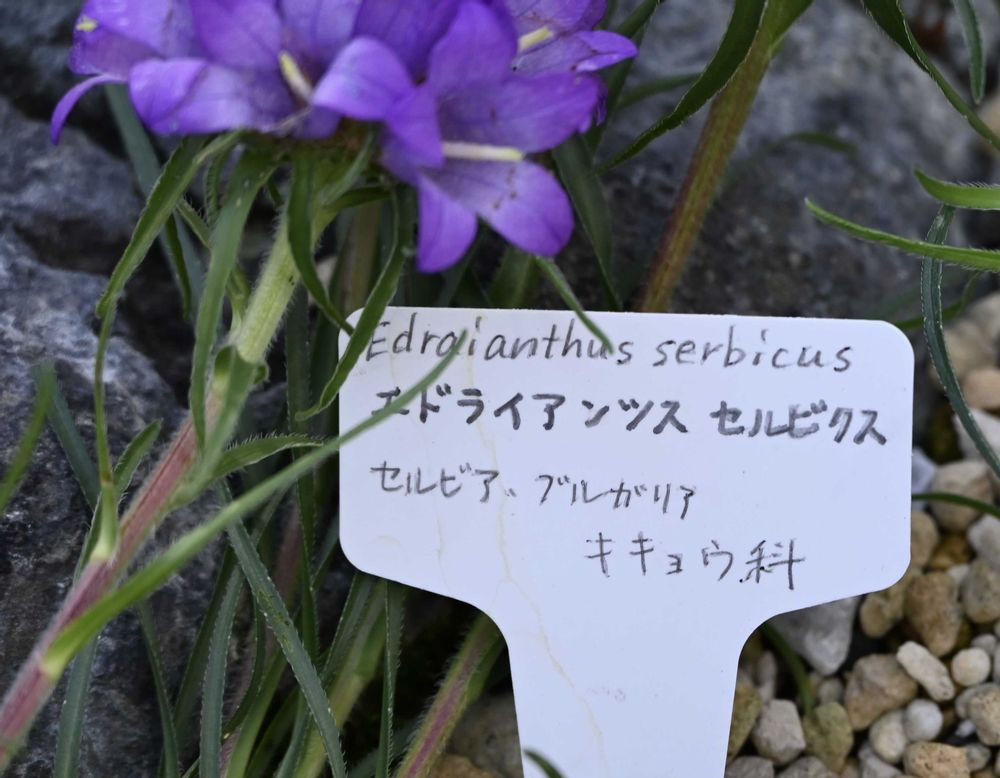 Edraianthus serbicus
エドライアンツス セルビクス
セルビア、ブルガリア
キキョウ科